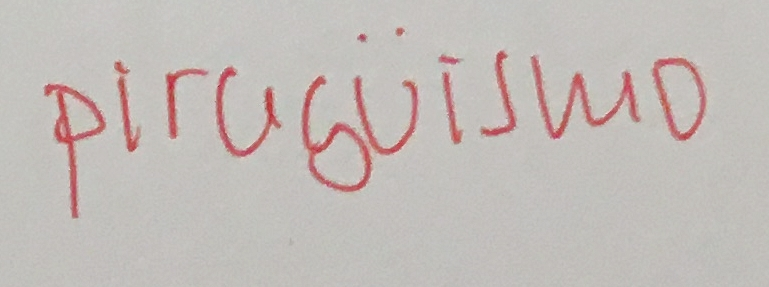 piragüismo